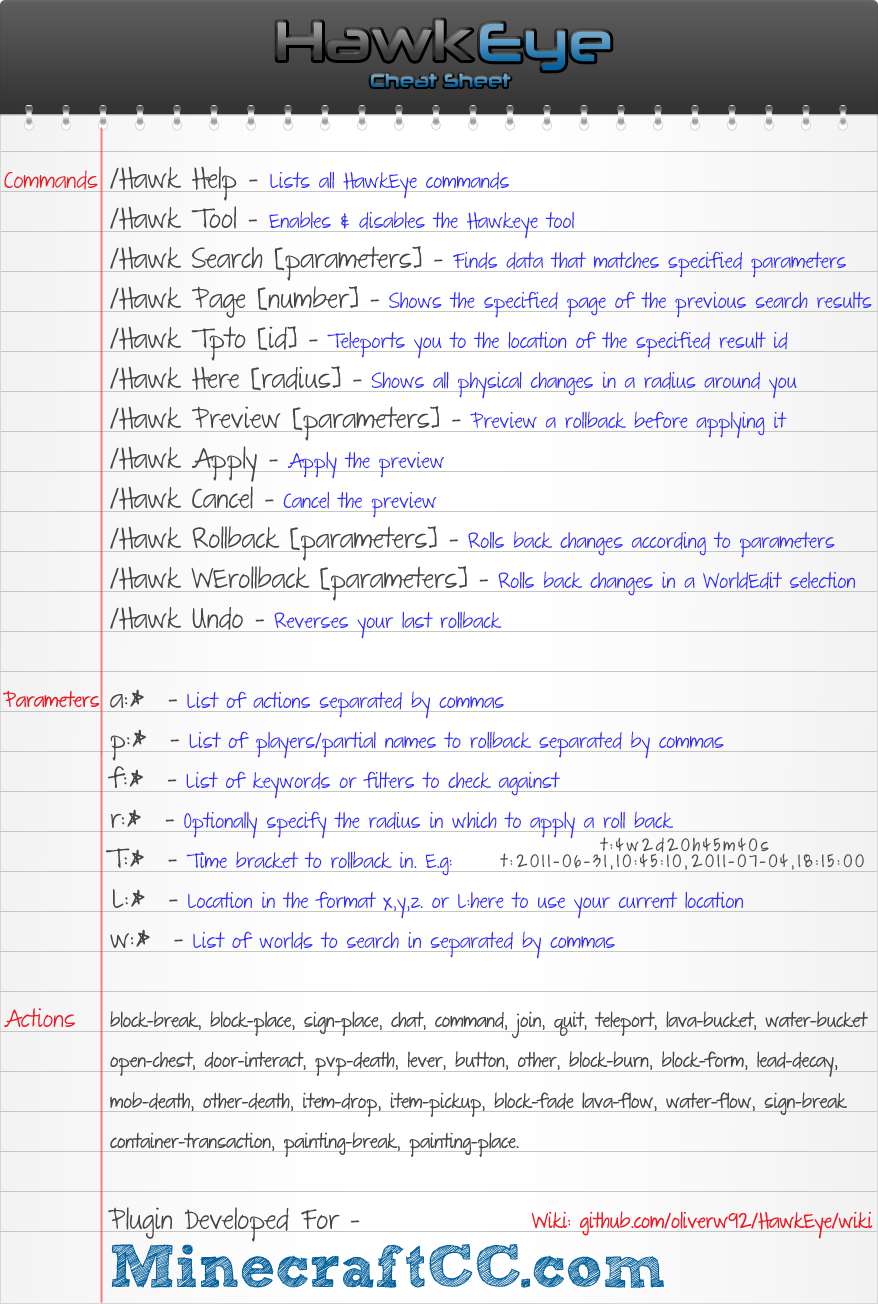 HawkEye
Cheat Sheet
Commands /Hawk Help - Lists all HawkEye commands
/Hawk Tool - Enables & disables the Hawkeye tool
/Hawk Search [parameters] - Finds data that matches specified parameters
/Hawk Page [number] - Shows the specified page of the previous search results
/Hawk Tpto [id] - Teleports you to the location of the specified result id
/Hawk Here [radius] - Shows all physical changes in a radius around you
/Hawk Preview [parameters] - Preview a rollback before applying it
/Hawk Apply - Apply the preview
/Hawk Cancel - Cancel the preview
/Hawk Rollback [parameters] - Rolls back changes according to parameters
/Hawk WErollback [parameters] - Rolls back changes in a WorldEdit selection
/Hawk Undo - Reverses your last rollback
Parameters a:* - List of actions separated by commas
p:* - List of players/partial names to rollback separated by commas
f:* - List of keywords or filters to check against
r:* - Optionally specify the radius in which to apply a roll back
T:* - Time bracket to rollback in. E.g: t:4w2d20h45m40s
t:2011-06-31,10:45:10,2011-07-04,18:15:00
L:* - Location in the format x,y,z. or L:here to use your current location
w:* - List of worlds to search in separated by commas
Actions block-break, block-place, sign-place, chat, command, join, quit, teleport, lava-bucket, water-bucket
open-chest, door-interact, pvp-death, lever, button, other, block-burn, block-form, lead-decay,
mob-death, other-death, item-drop, item-pickup, block-fade lava-flow, water-flow, sign-break
container-transaction, painting-break, painting-place.
Plugin Developed For - Wiki: github.com/oliverw92/HawkEye/wiki
MinecraftCC.com